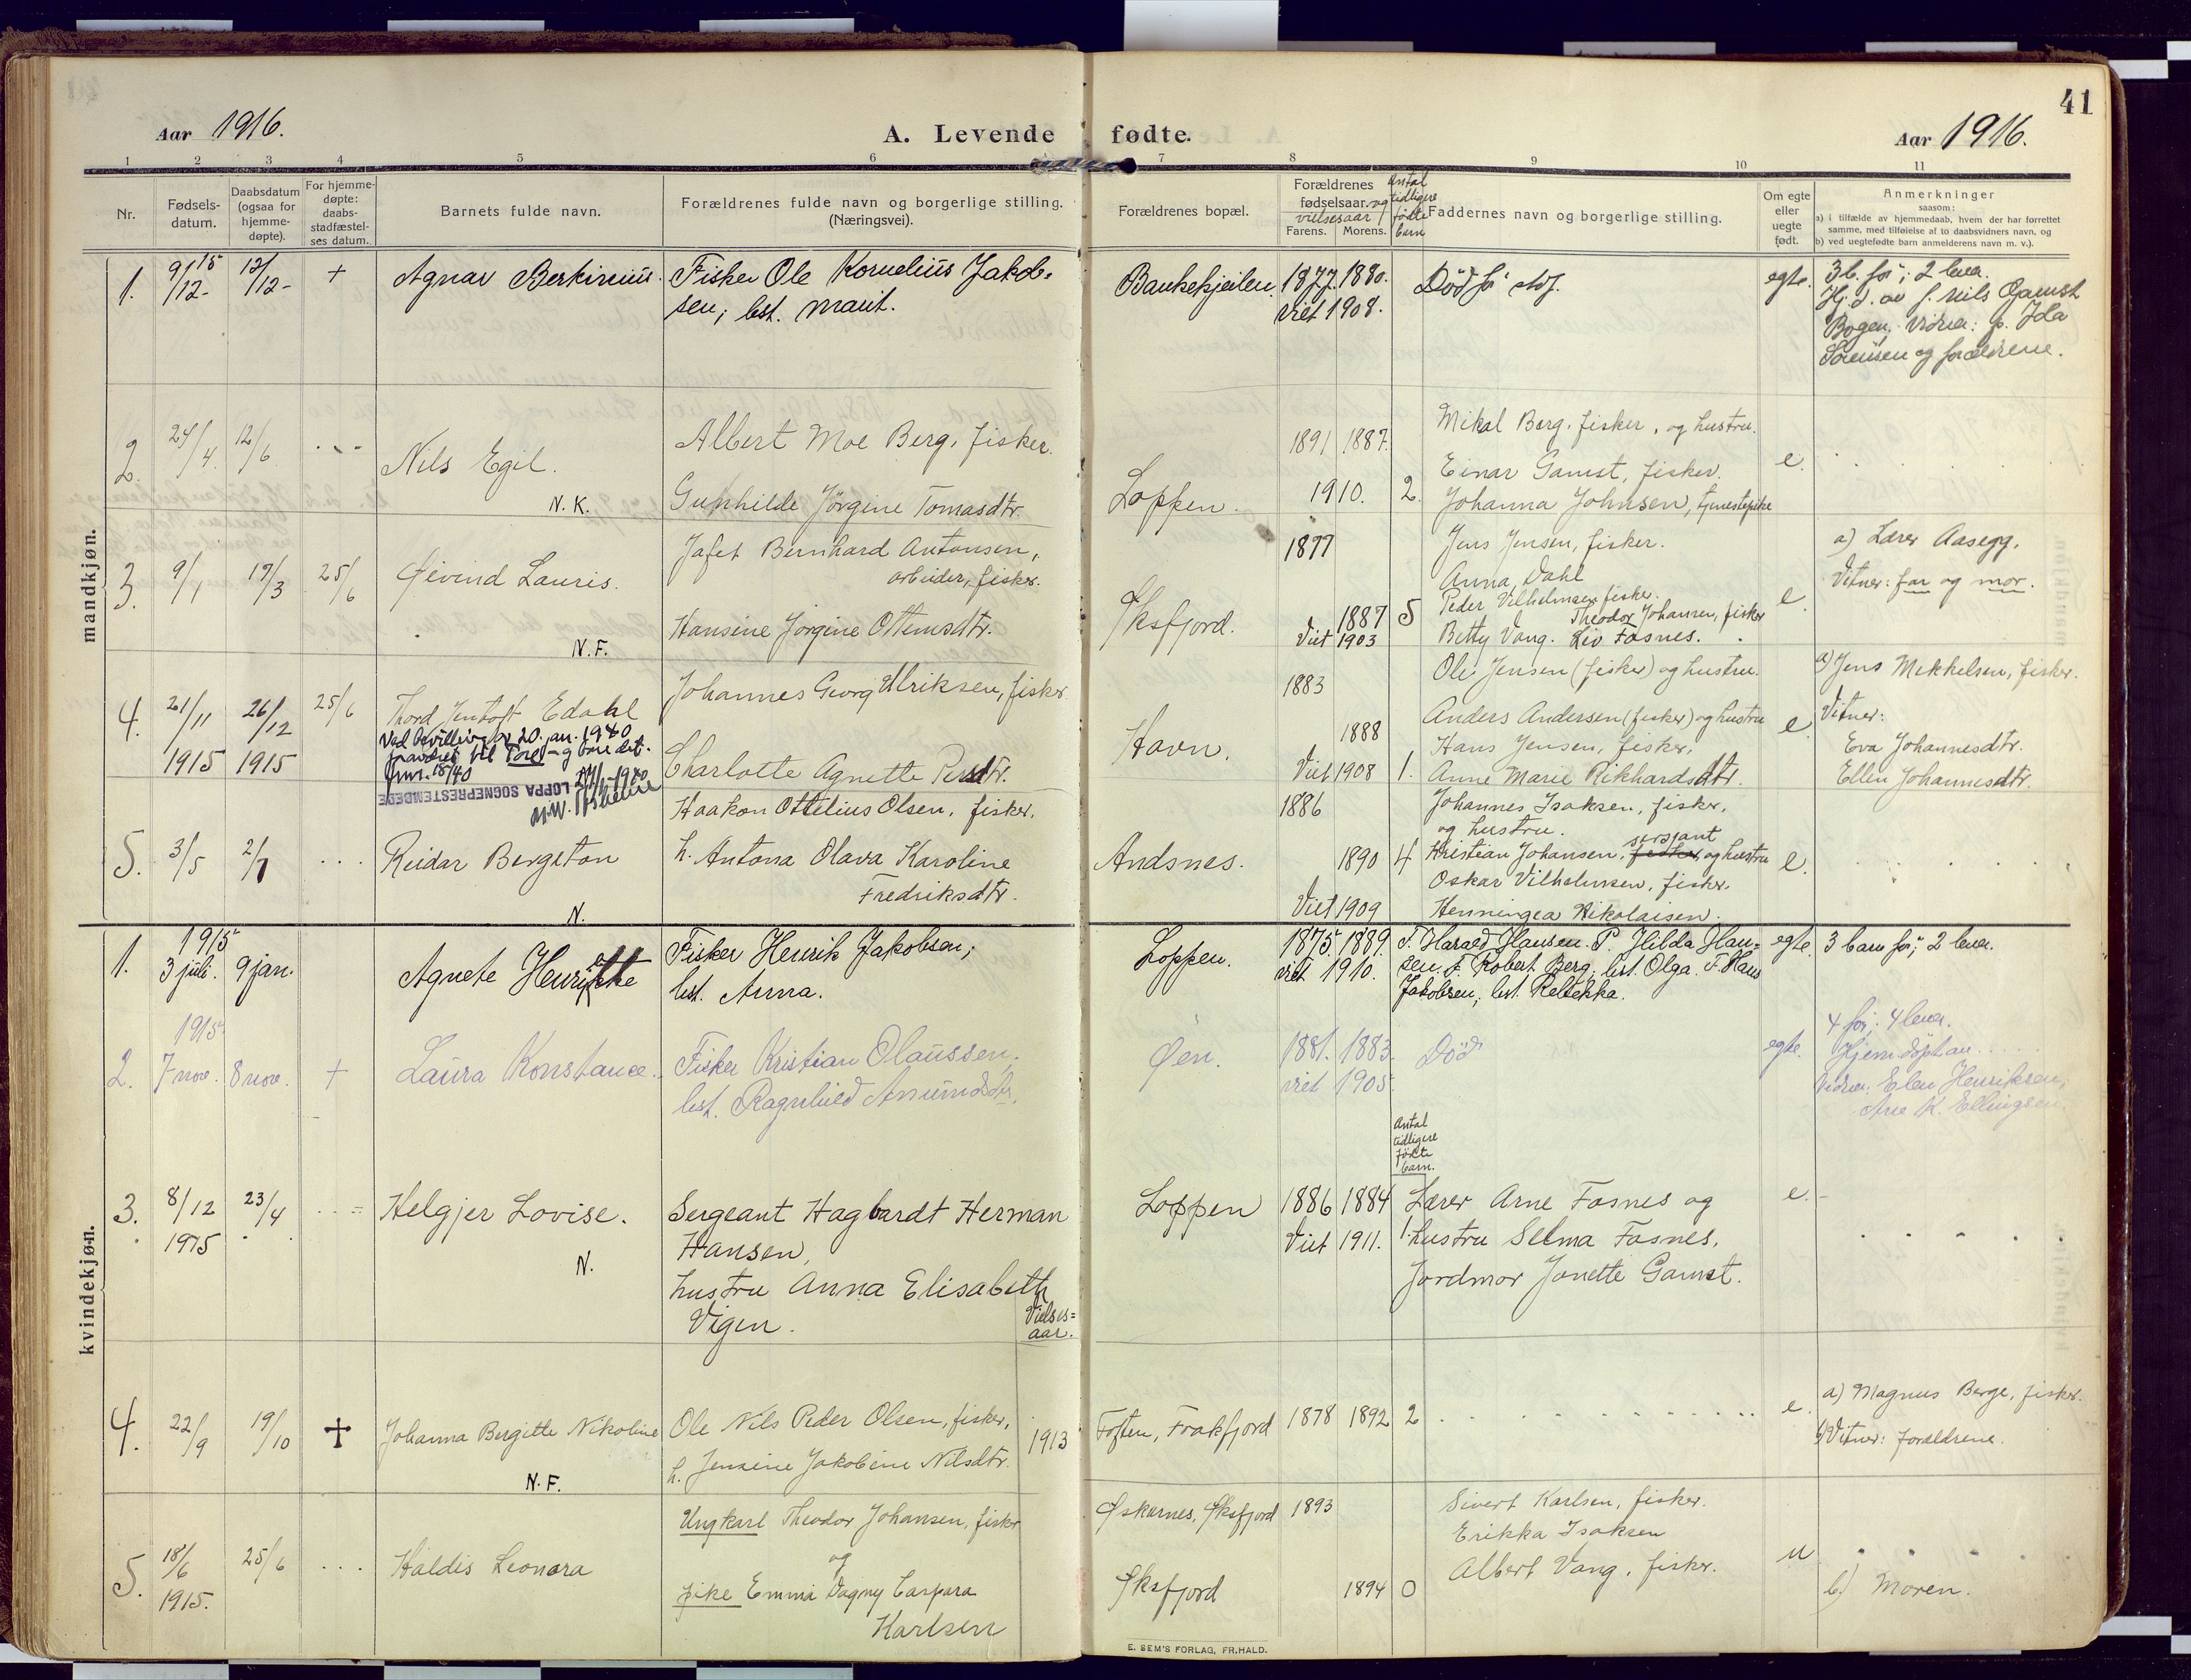 41
Aar 1916.
A. Levende fødte.
Aar 1916.
1 2 3 4 5 6 7 8 9 10 11
Nr.
Fødsels-
datum.
Daabsdatum
(ogsaa for
hjemme-
døpte).
For hjemme-
døpte:
daabs-
stadfæstel-
ses datum.
Barnets fulde navn.
Forældrenes fulde navn og borgerlige stilling.
(Næringsvei).
Forældrenes bopæl.
Forældrenes
fødselsaar og
vielsesaar
Farens. Morens.
Antal
tidligere
fødte
barn
Faddernes navn og borgerlige stilling.
Om egte
eller
uegte
født.
Anmerkninger
saasom:
a) i tilfælde av hjemmedaab, hvem der har forrettet
samme, med tilføielse af to daabsvidners navn, og
b) ved uegtefødte barn anmelderens navn m. v.).
mandkjøn.
1. 9/12- 15 12/12- +
Agnar Berkinius.
Fisker Ole Kornelius Jakob-
sen, hst. Marit.
1877. 1880.
viet 1908.
Død
egte.
3 b. før; 2 lever.
Hj. d. av f. Nils Gamst
Bogen, vidner: p. Ida
Sørensen og forældrene.
2. 24/4 12/6
Nils Egil.
N. K.
Albert Moe Berg, fisker.
Gunhilde Jörgine Tomasdtr.
Loppen.
1891 1887.
1910. 2.
Mikal Berg, fisker, og hustru.
Einar Gamst, fisker.
Johanna Johnsen, tjenestepike
e.
3. 9/1 19/3 25/6
Øivind Lauris.
N. F.
Jafet Bernhard Antonsen,
arbeider, fisker.
Hansine Jörgine Ottemsdtr.
Øksfjord.
1877
1887 5
Viet 1903
Jens Jensen, fisker.
Anna Dahl
Peder Vilhelmsen fisker.
Theodor Johansen, fisker
Betty Vang. Liv Fosnes.
e.
a) Lærer Aasegg.
Vitner: far og mor.
4. 21/11 26/12 25/6
1915 1915
Thord Jentoft Edahl
Ved bevilling av 20. jan. 1940
LOPPA SOGNEPRESTEMBEDE
Johannes Georg Ulriksen, fisker
Charlotte Agnette Persdtr.
Havn.
1883
1888
Viet 1908 1.
Ole Jensen (fisker) og hustru.
Anders Andersen (fisker) og hustru
Hans Jensen, fisker.
Anne Marie Rikhardsdtr.
e.
a) Jens Mekkelsen, fisker.
Vitner:
Eva Johannesdtr.
Ellen Johannesdtr.
5. 3/5 2/7
Reidar Bergeton
N.
Haakon Ottelius Olsen, fisker.
h. Antona Olava Karoline
Fredriksdtr.
Andsnes.
1886
1890 4
Viet 1909
Johannes Isaksen, fisker,
og hustru.
Kristian Johansen, sersjant og hustru
Oskar Vilhelmsen, fisker.
Henningea Nikolaisen.
e.
kvindekjøn.
1. 1915
3 juli. 9 jan.
Agnete Henriette
Fisker Henrik Jakobsen;
hst. Anna.
Loppen.
1875 1889.
viet 1910.
F. Harald Hansen. P. Hilda Han-
sen. F. Robert Berg; hst. Olga. F. Hans
Jakobsen; hst. Rebekka.
egte.
3 barn før; 2 lever.
2. 1915
7 nov. 8 nov. +
Laura Konstance.
Fisker Kristian Olaussen,
hst. Ragnhild Amundsdtr.
Øen.
1881. 1883.
viet 1905.
Død
egte.
4 før; 4 lever.
Hjemdøpt av ....
Vidner: Elen Henriksen,
Ane K. Ellingsen.
Antal
tidligere
fødte
barn.
3. 8/12 23/4
1915
Helgjer Lovise.
N.
Sergeant Hagbardt Herman
Hansen,
hustru Anna Elisabeth
Vigen.
Vielses=
aar.
Loppen
1886 1884
Viet 1911. 1.
Lærer Arne Fosnes og
hustru Selma Fosnes.
Jordmor Jonette Gamst.
e.
4. 22/9 19/10 +
Johanna Bergitte Nikoline
N. F.
Ole Nils Peder Olsen, fisker,
h. Jensine Jakobine Nilsdtr.
1913
Toften, Frakfjord
1878 1892 2
e.
a) Magnus Berge, fisker.
Vitner: forældrene.
5. 18/6 25/6
1915.
Haldis Leonora
Ungkarl Theodor Johansen, fisker
og
pike Emma Dagny Caspara
Karlsen
Øksfjord 1893
Øksfjord
1894 0
Sivert Karlsen, fisker.
Erikka Isaksen
Albert Vang, fisker.
u
b) Moren.
E. SEM'S FORLAG, FR.HALD.